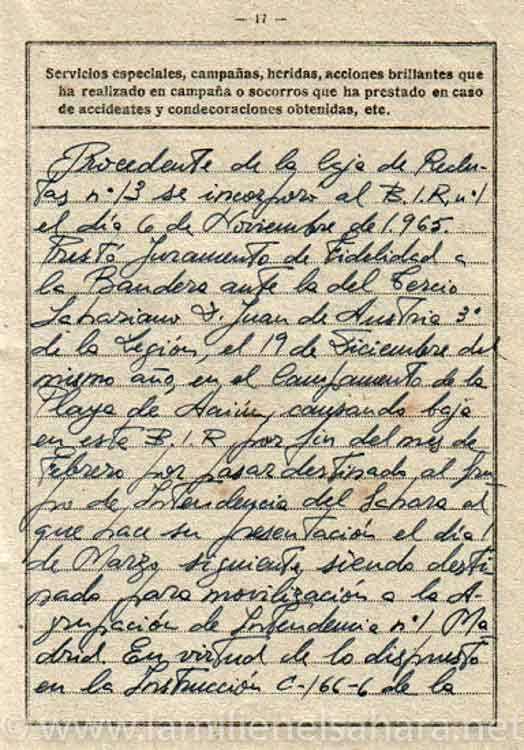 — 17 —
Servicios especiales, campañas, heridas, acciones brillantes que
ha realizado en campaña o socorros que ha prestado en caso
de accidentes y condecoraciones obtenidas, etc.
Procedente de la Caja de Reclu-
tas nº 13 se incorporó al B.I.R. nº 1
el día 6 de Noviembre de 1.965.
Prestó Juramento de Fidelidad a
la Bandera ante la del Tercio
Sahariano D. Juan de Austria 3º
de la Legión, el 19 de Diciembre del
mismo año, en el Campamento de la
Playa de Aaiún, causando baja
en este B.I.R por fin del mes de
Febrero por pasar destinado al Gru-
po de Intendencia del Sahara al
que hace su presentación el día 1
de Marzo siguiente, siendo desti-
nado para movilización a la A-
grupación de Intendencia nº 1 Ma
drid. En virtud de lo dispuesto
en la Instrucción C-166-6 de la
© www.lamilienelsahara.net